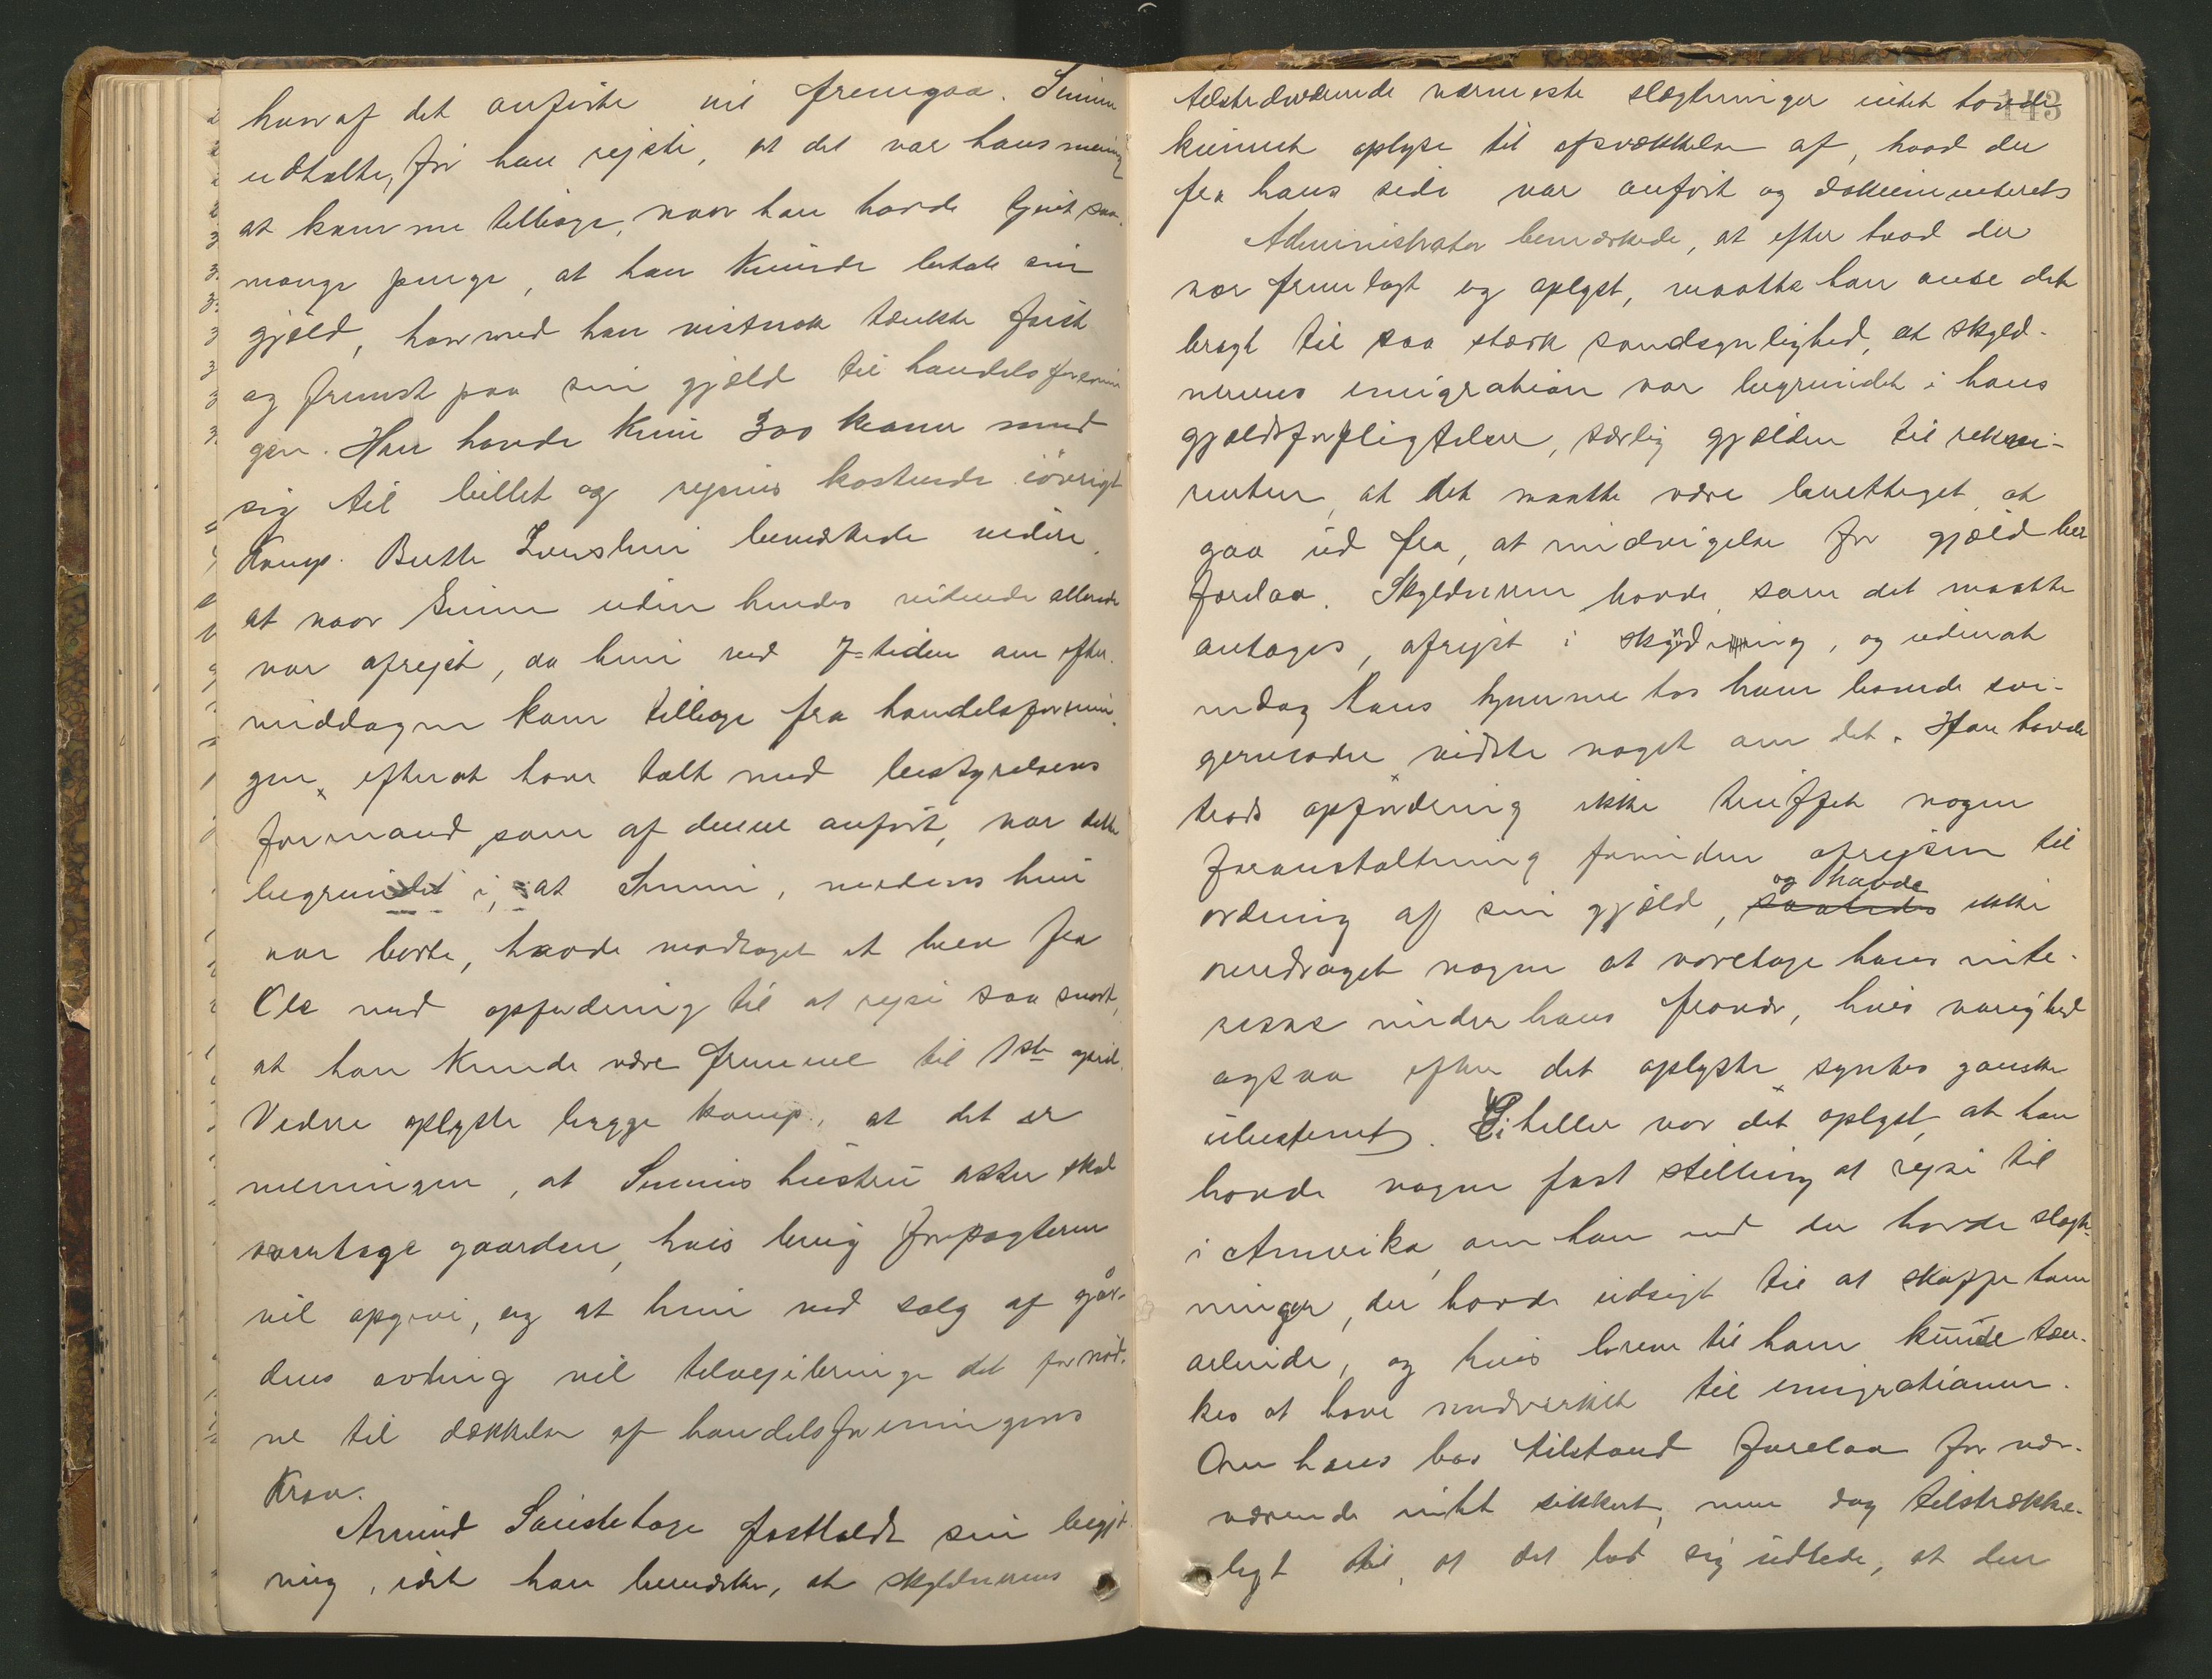 hvoraf det anførte vil fremgaa. Sinnin
udtalte, før han rejste, at det var hans mening
at komme tilbage, naar han havde tjent saa
mange penge, at han kunde betale sin
gjæld, hvorved han vistnok tænkte først
og fremst paa sin gjæld til handelsforenin
gen. Han havde kun 300 kroner med
sig til billet og rejsens kostende iøvrigt
Komp. Berthe bemærkede videre,
at naar uden hendes vidende allerede
var afrejst, da hun ved 7-tiden om efter-
middagen kom tilbage fra handelsforenin-
gen, efterat have talt med bestyrelsens
formand, som af denne anført, var dette
begrundet i, at, medens hun
var borte, havde modtaget et brev fra
Ole med opfordring til at rejse saa snart,
at han kunde være fremme til 1ste april.
Videre oplyste begge komp., at det er
meningen, at hustru atter skal
overtage gaarden, hvis brug forpagteren
vil opgive, og at hun ved salg af går-
dens avling vil tilvejebringe det fornød-
ne til dækkelse af handelsforeningens
Krav.
Amund fastholdt sin begjæ-
ring, idet han bemærker, at skyldnerens
143
tilstedeværende nærmeste slægtninger intet havde
kunnet oplyse til afsvækkelse af, hvad der
fra hans side var anført og dokumenteret.
Administrator bemærkede, at efter hvad der
var fremlagt og oplyst, maatte han anse det
bragt til saa stærk sandsynlighed, at skyld-
nerens emigration var begrundet i hans
gjældsforpligtelser, særlig gjælden til rekvi-
renten, at det maatte være berettiget at
gaa ud fra, at undvigelse for gjæld her
forelaa. Skyldneren havde, som det maatte
antages, afrejst i skynding, og uden at
endog hans hjemme hos ham boende svi-
germoder vidste noget om det. Han havde
trods opfordring ikke truffet nogen
foranstaltning forinden afrejsen til
ordning af sin gjæld, saaledes og havde ikke
overdraget nogen at varetage hans inte-
resse under hans fravær, hvis varighed
ogsaa efter det oplyste syntes ganske
ubestemt. Ei heller var det oplyst, at han
havde nogen fast stilling at rejse til
i Amerika, om han end der havde slægt-
ninger, der havde udsigt til at skaffe ham
arbeide, og hvis breve til ham kunde tæn-
kes at have medvirket til emigrationen.
Om hans bos tilstand forelaa for nær-
værende intet sikkert, men dog tilstrække-
ligt til, at det lod sig udlede, at den